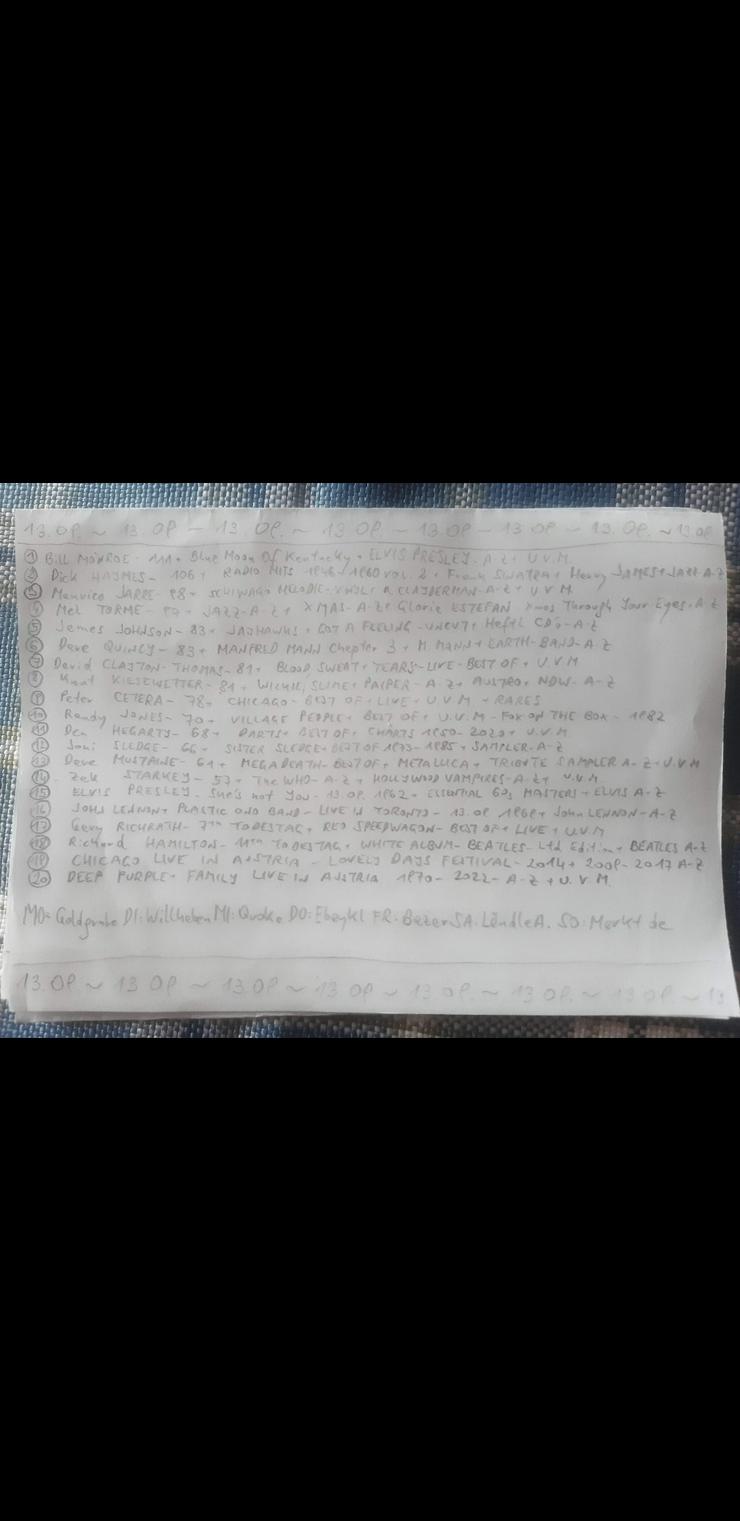 13.09. ~ 13.09 - 13.09. ~ 13.09 - 13.09 - 13.09 - 13.09. ~ 13.09
① BILL MONROE - 111 + Blue Moon Of Kentucky + ELVIS PRESLEY - A-Z + U.V.M.
② Dick HAYMES - 106 + RADIO HITS 1946-1960 VOL. 2 + Frank SINATRA + Henry JAMES + JAZZ A-Z
③ Maurice JARRE - 98 + SCHIWAGO MELODIE - R. CLAYDERMAN - A-Z + U.V.M.
④ Mel TORME - 97 + JAZZ - A-Z + XMAS - A-Z + Gloria ESTEFAN Xmas Through Your Eyes + A-Z
⑤ James JOHNSON - 83 + JAYHAWKS + GOT A FEELING - UNCUT + Heftl CD's - A-Z
⑥ Dave QUINCY - 83 + MANFRED MANN Chapter 3 + M. MANN + EARTH - BAND - A-Z
⑦ David CLAYTON - THOMAS - 81 + BLOOD SWEAT + TEARS - LIVE - BEST OF + U.V.M
⑧ Knut KIESEWETTER - 81 + WICKIE, SLIME + PAIPER - A-Z + AUSTRO + NDW - A-Z
⑨ Peter CETERA - 78 + CHICAGO - BEST OF + LIVE + U.V.M + RARES
⑩ Randy JONES - 70 + VILLAGE PEOPLE + BEST OF + U.V.M - FOX ON THE BOX - 1982
⑪ Den HEGARTY - 68 + DARTS + BEST OF + CHARTS 1950-2020 + U.V.M
⑫ Joni SLEDGE - 66 + SISTER SLEDGE + BEST OF 1973-1985 + SAMPLER - A-Z
⑬ Dave MUSTAINE - 61 + MEGADEATH - BEST OF + METALLICA + TRIBUTE SAMPLER A-Z + U.V.M
⑭ Zak STARKEY - 57 + The WHO - A-Z + HOLLYWOOD VAMPIRES - A-Z + U.V.M.
⑮ ELVIS PRESLEY - She's not You - 13.09.1962 + ESSENTIAL 60s MASTERS + ELVIS A-Z
⑯ JOHN LENNON + PLASTIC ONO BAND - LIVE IN TORONTO - 13.09.1969 + John LENNON - A-Z
⑰ Gary RICHRATH - 7TH TODESTAG + REO SPEEDWAGON - BEST OF + LIVE + U.V.M
⑱ Richard HAMILTON - 11TH TODESTAG + WHITE ALBUM - BEATLES - Ltd. Edition + BEATLES A-Z
⑲ CHICAGO LIVE IN AUSTRIA - LOVELY DAYS FESTIVAL - 2014 + 2009 - 2017 A-Z
⑳ DEEP PURPLE + FAMILY LIVE IN AUSTRIA 1970-2022 - A-Z + U.V.M.
MO: Goldgrube DI: Willhaben MI: Quoka DO: Ebaykl FR: Bazar SA: LändleA. SO: Markt de
13.09 ~ 13.09 ~ 13.09 ~ 13.09 ~ 13.09 ~ 13.09. ~ 13.09 ~ 13